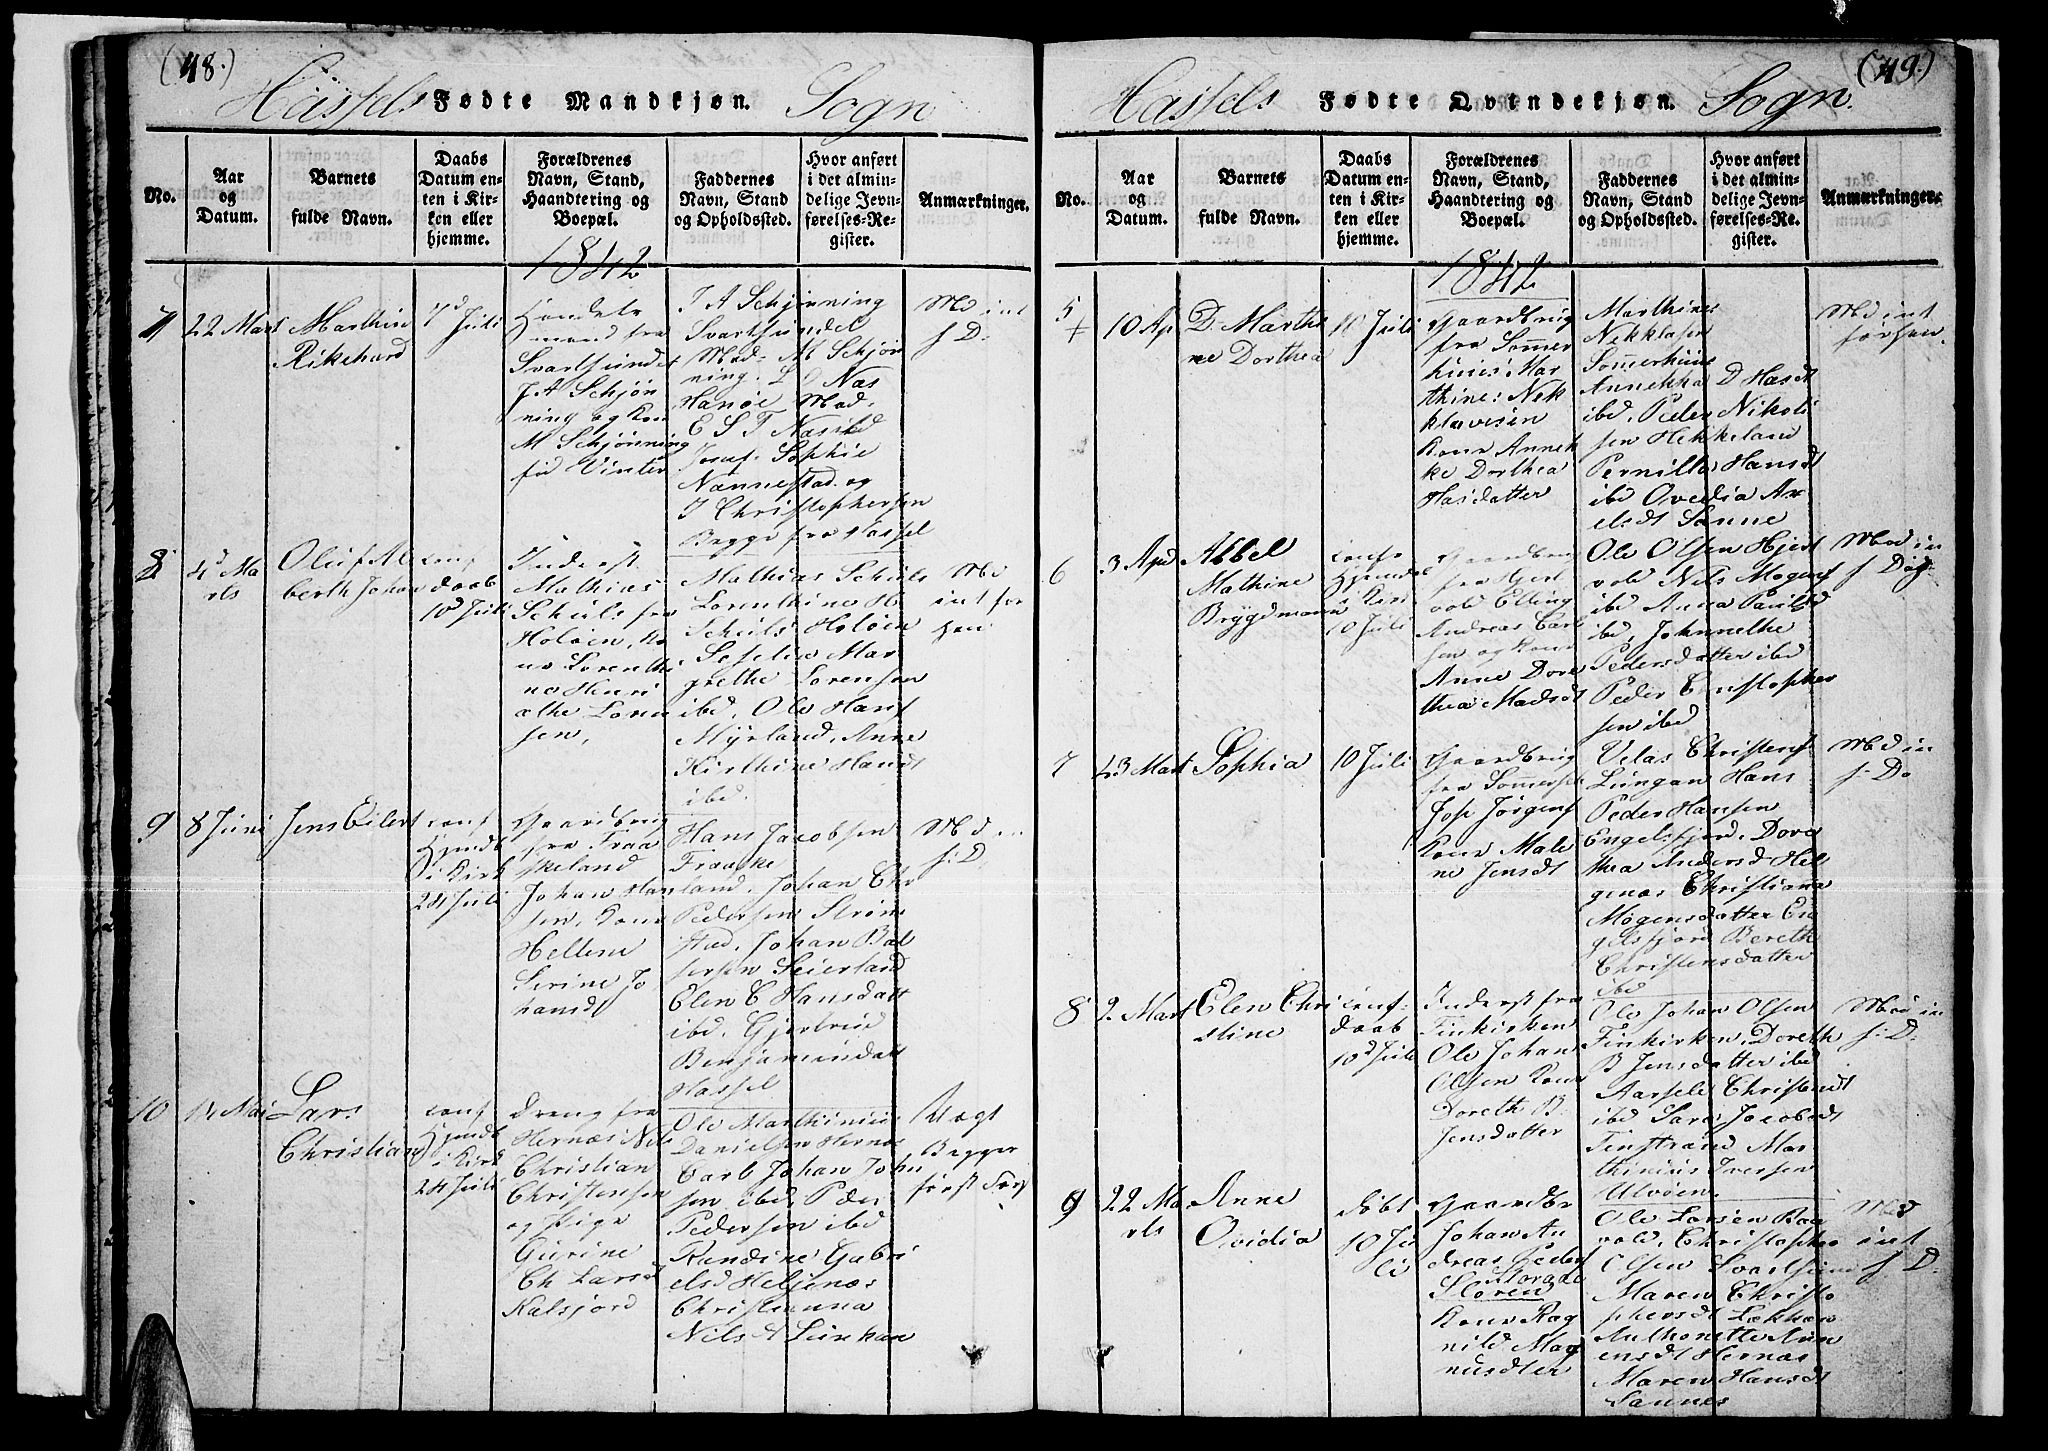 (48.)
Hassels Fødte Mandkjøn. Sogn
No.
Aar
og
Datum.
Barnets
fulde Navn.
Daabs
Datum en-
ten i Kir-
ken eller
hjemme.
Forældrenes
Navn, Stand,
Haandtering og
Boepæl.
Faddernes
Navn, Stand
og Opholdssted.
Hvor anført
i det almin-
delige Jevn-
førelses-Re-
gister.
Anmærkninger.
1842
7
22 Mars
Marthin
Rikehard
7d Juli
Handels
mand fra
Svartsundet
J A Schjøn
ning og Kone
M Schjønning
fød Vinter
J A Schjønning
Svartsundet
Mad. M Schjøn
ning. L O Næs
Hanøe Mad.
E S T Næs ibd
Josef. Sophie
Nannestad og
J Christophersen
Brygge fra Hassel
8
4d Ma
rts
Oluf Al
berth Johan
conf
daab
10d Juli
Inderst
Mathias
Schuls fra
Holøen, Ko
ne Lorenthi
ne Henri
ethe Loren
sen,
Mathias Schuls
Lorenthine H.
Schuls Holøen
Seselie Mar
grethe Lorensen
ibd, Ole Hans
Myrland, Anne
Kirthine Hansdt
ibd.
9
8 Juni
Jens Eilert
conf
Hjemdb
i Kirk
24 Juli
Gaardbrug
fra Fraa
skeland
Johan Han
sen, Kone
Hellene
Serine Jo
hansdt
Hans Jacobsen
Fraaske
land. Johan Chr
Pedersen Strøm
stad. Johan Bal
sersen Seierland
Elen C Hansdatt
ibd. Gjertrud
Benjamindatt
Hassel
10
14 Mai
Lars
Christian
conf
Hjemdb
i Kirk
24 Juli
Dreng fra
Hernæs Nils
Christian
Christensen
og Pige
Gurine
Ch Larsd
Kalsjord
Ole Marthinus
Danielsen Hernæs
Carl Johan Joh
sen ibd, Peder
Pedersen ibd
Randine Gabri
elsd Helgenæs
Christianna
Nils d Sunkan
(49.)
Hassels Fødte Qvindekjøn. Sogn.
No.
Aar
og
Datum.
Barnets
fulde Navn.
Daabs
Datum en-
ten i Kir-
ken eller
hjemme.
Forældrenes
Navn, Stand,
Haandtering og
Boepæl.
Faddernes
Navn, Stand
og Opholdssted.
Hvor anført
i det almin-
delige Jevn-
førelses-Re-
gister.
Anmærkninger.
1842
5
10 Ap
D Marthi
ne Dorthea
10 Juli
Gaardbrug
fra Sommer
huus Mar
thinus Nek
klavisen
Kone Annek
ke Dorthea
Hasdatter
Marthines
Nekklasen
Sommerhuus
Annekke D Hasdt
ibd, Peder Nikoli
sen Hekkeland
Pernille Hansdt
ibd Ovedia Ax
elsdt Sanne
6
3 Apr
Abbel
Mathine
Bryggmann
conf
Hjemdb
i Kirk
10 Juli
Gaardbrug
fra Hjert
vold Elling
Andreas Carl
sen og Kone
Anne Doro
thea Madsdt
Ole Olsen Hjert
vold Nils Mogens
ibd Anna Paulsd
ibd, Johnnethe
Pedersdatter ibd
Peder Christopher
sen ibd
7
23 Mart
Sophia
10 Juli
Gaardbrug
fra Sommersæt
Jose Jørgens
Kone Male
ne Jensdt
Velas Christens
Lungan Hans
Peder Hansen
Engelsfjord, Doro
thea Andersd Hel
genæs Christiana
Mogensdatter En
gelsfjord Bereth
Christensdatter
ibd
8
2 Mart
Elen Chri
stine
conf.
daab
10d Juli
Inderst fra
Finkirken
Ole Johan
Olsen Kone
Doreth B.
Jensdatter
Ole Johan Olsen
Finkirken, Doreth
B Jensdatter ibd
Aarsele Christensdt
ibd Sara Jacobsdt
Finstrand Mar
thinius Iversen
Ulvøen
9
22 Ma
rts
Anne
Ovidia
døbt
10 Ju
li
Gaardbr
Johan An
dreas Peder
Storaae
Storen
Kone Rag
nild Mag
nusdtter
Ole Larsen Raa
vold, Christopher
Olsen Svartsund
Maren Christo
phersdt Løkhan
Anthonette Arn
ensdt Hernæs
Maren Hansdt
Sannes